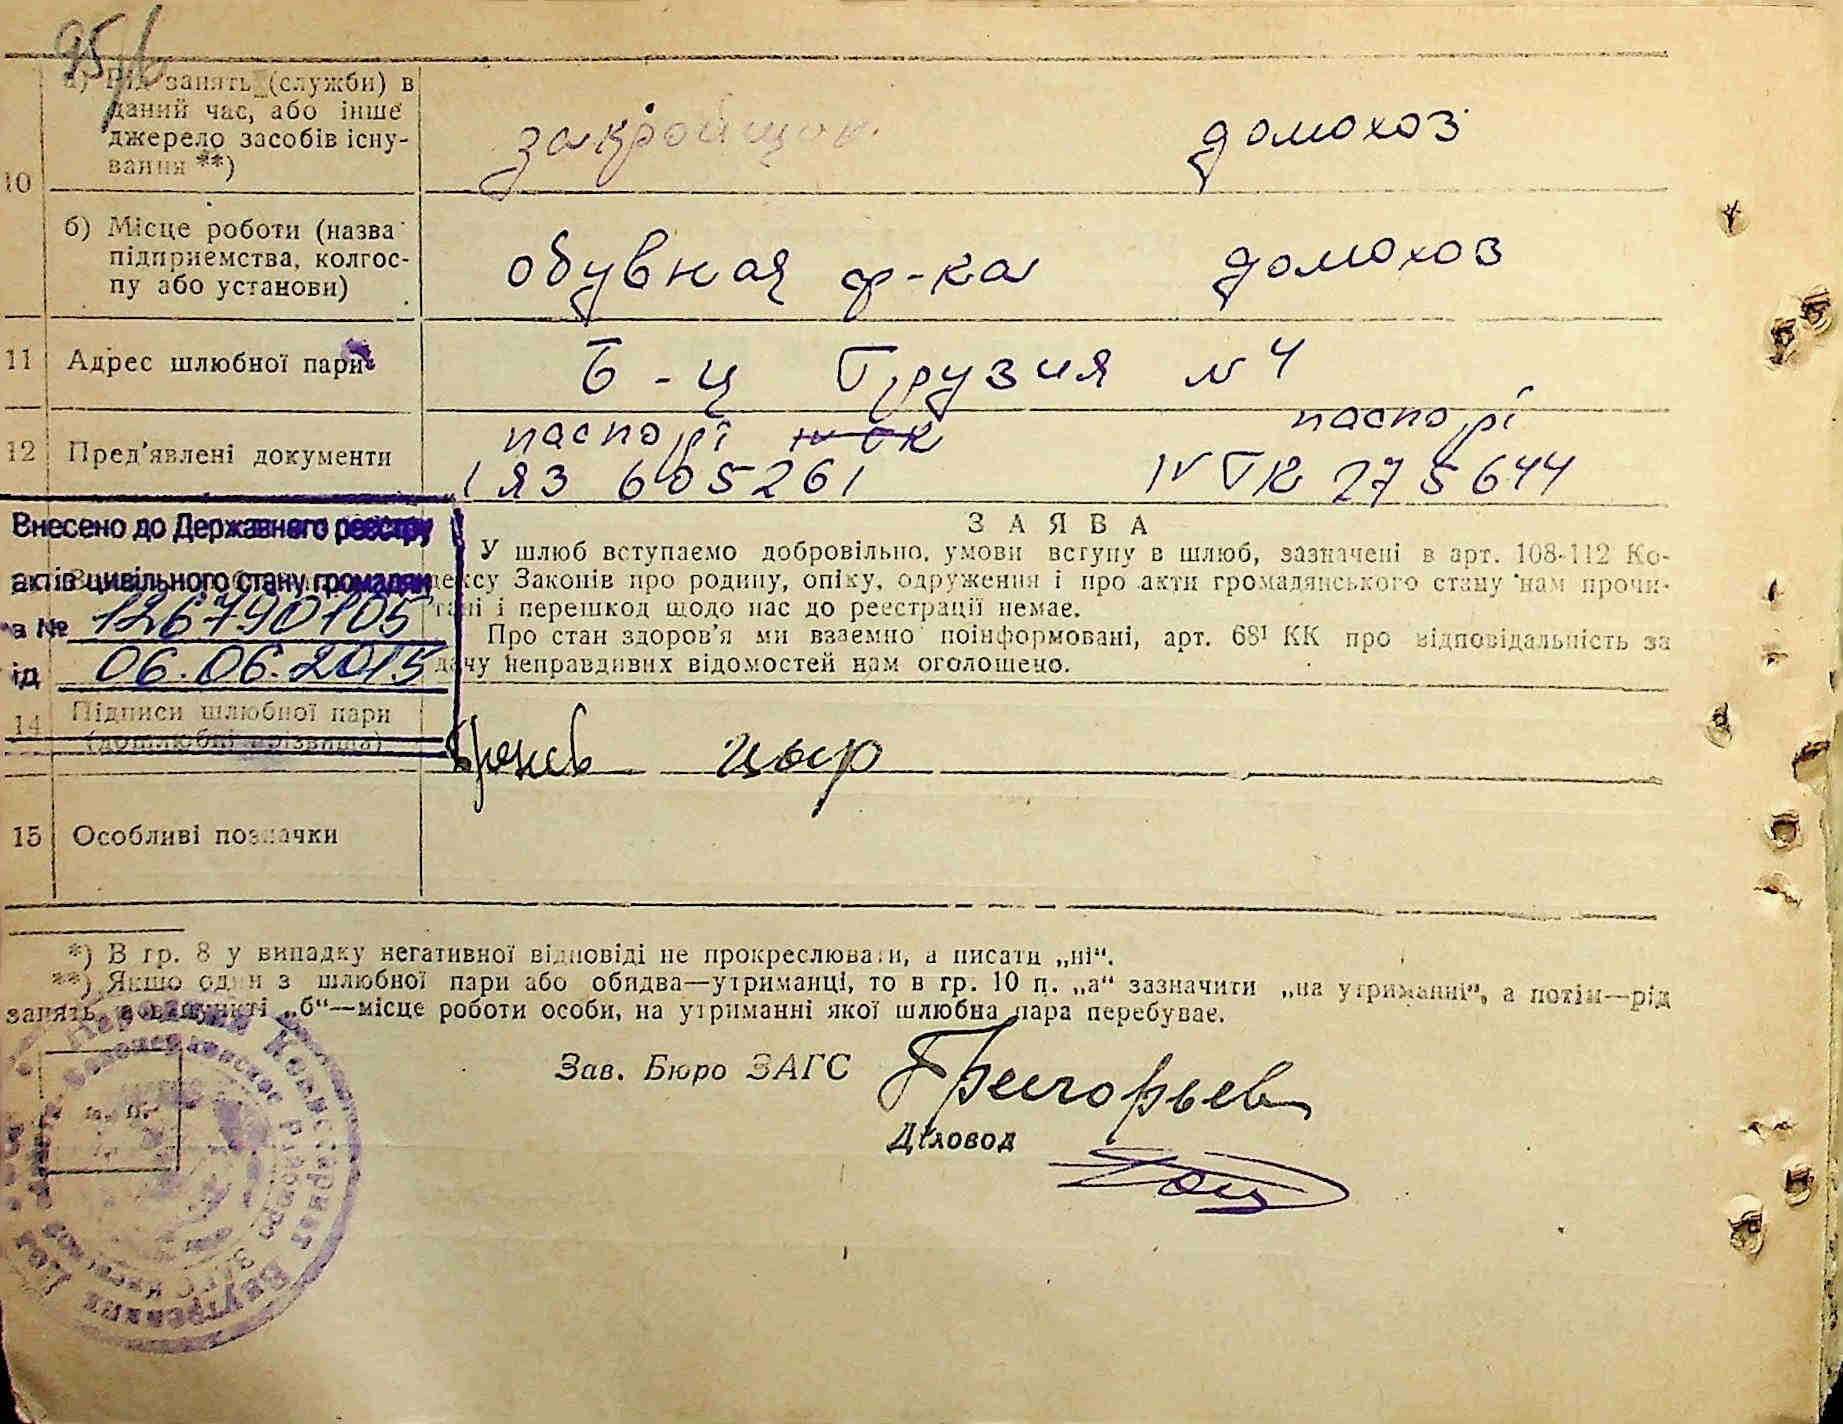 95/6
10
а) Рід занять (служби) в
даний час, або інше
джерело засобів існу-
вання **)
закройщик
домохоз
б) Місце роботи (назва
підприємства, колгос-
пу або установи)
обувная ф-ка
домохоз
11 Адрес шлюбної пари
Б-ц Грузия № 4
12 Пред'явлені документи
паспорт
паспорт
I ЯЗ 605261
IV ГК 275644
Внесено до Державного реєстру
актів цивільного стану громадян
за № 126790105
від 06.06.2015
З А Я В А
У шлюб вступаємо добровільно, умови вступу в шлюб, зазначені в арт. 108-112 Ко-
дексу Законів про родину, опіку, одруження і про акти громадянського стану нам прочи-
тані і перешкод щодо нас до реєстрації немає.
Про стан здоров'я ми взаємно поінформовані, арт. 68¹ КК про відповідальність за
дачу неправдивих відомостей нам оголошено.
14 Підписи шлюбної пари
(дошлюбні прізвища)
цыр
15 Особливі позначки
*) В гр. 8 у випадку негативної відповіді не прокреслювати, а писати „ні“.
**) Якщо один з шлюбної пари або обидва—утриманці, то в гр. 10 п. „а“ зазначити „на утриманні“, а потім—рід
занять, а в пункті „б“—місце роботи особи, на утриманні якої шлюбна пара перебуває.
Зав. Бюро ЗАГС Григорьев
Діловод